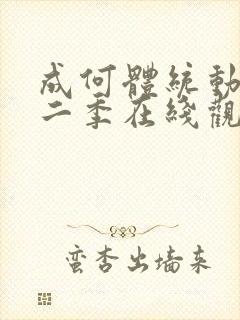 成何體統動
二季在綫觀
蛮杏出墙来